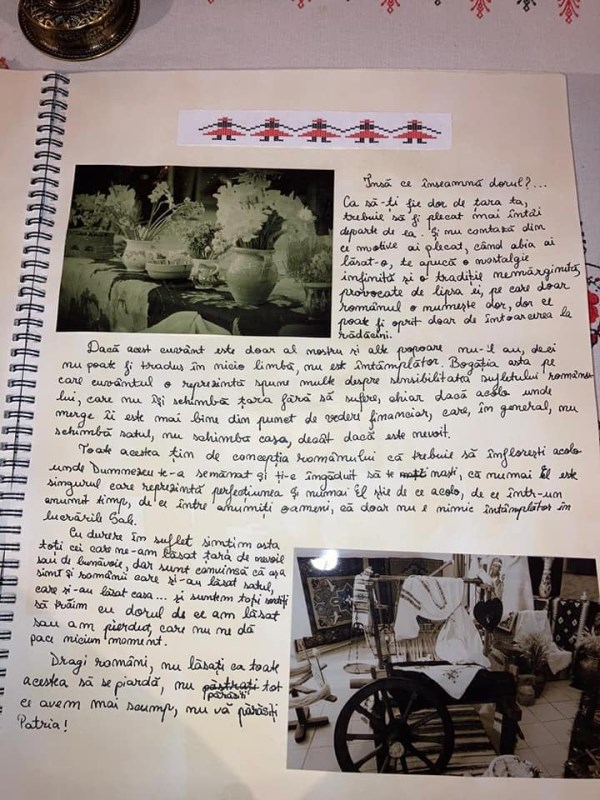 Însă ce înseamnă dorul?...
Ca să-ți fie dor de țara ta,
trebuie să fi plecat mai întâi
departe de ea. Și nu contează din
ce motive ai plecat, când abia ai
lăsat-o, te apucă o nostalgie
infinită și o tradiție nemărginită,
provocate de lipsa ei, pe care doar
românul o numește dor, dor ce
poate fi oprit doar de întoarcerea la
rădăcini.
Dacă acest cuvânt este doar al nostru și alte popoare nu-l au, deci
nu poate fi tradus în nicio limbă, nu este întâmplător. Bogăția asta pe
care cuvântul o reprezintă spune multe despre sensibilitatea sufletului românu-
lui, care nu își schimbă țara fără să sufere, chiar dacă acolo unde
merge îi este mai bine din punct de vedere financiar, care, în general, nu
schimbă satul, nu schimbă casa, decât dacă este nevoit.
Toate acestea țin de concepția românului că trebuie să înflorești acolo
unde Dumnezeu te-a semănat și ți-e îngăduit să te naști, că numai El este
singurul care reprezintă perfecțiunea și numai El știe de ce acolo, de ce într-un
anumit timp, de ce între anumiți oameni, că doar nu e nimic întâmplător în
lucrările Sale.
Cu durere în suflet simțim asta
toți cei care ne-am lăsat țara de nevoie
sau de bunăvoie, dar sunt convinsă că așa
simt și românii care și-au lăsat satul,
care și-au lăsat casa... și suntem toți
să trăim cu dorul de ce am lăsat
sau am pierdut, care nu ne dă
pace niciun moment.
Dragi români, nu lăsați ca toate
acestea să se piardă, nu părăsiți tot
ce avem mai scump, nu vă părăsiți
Patria!